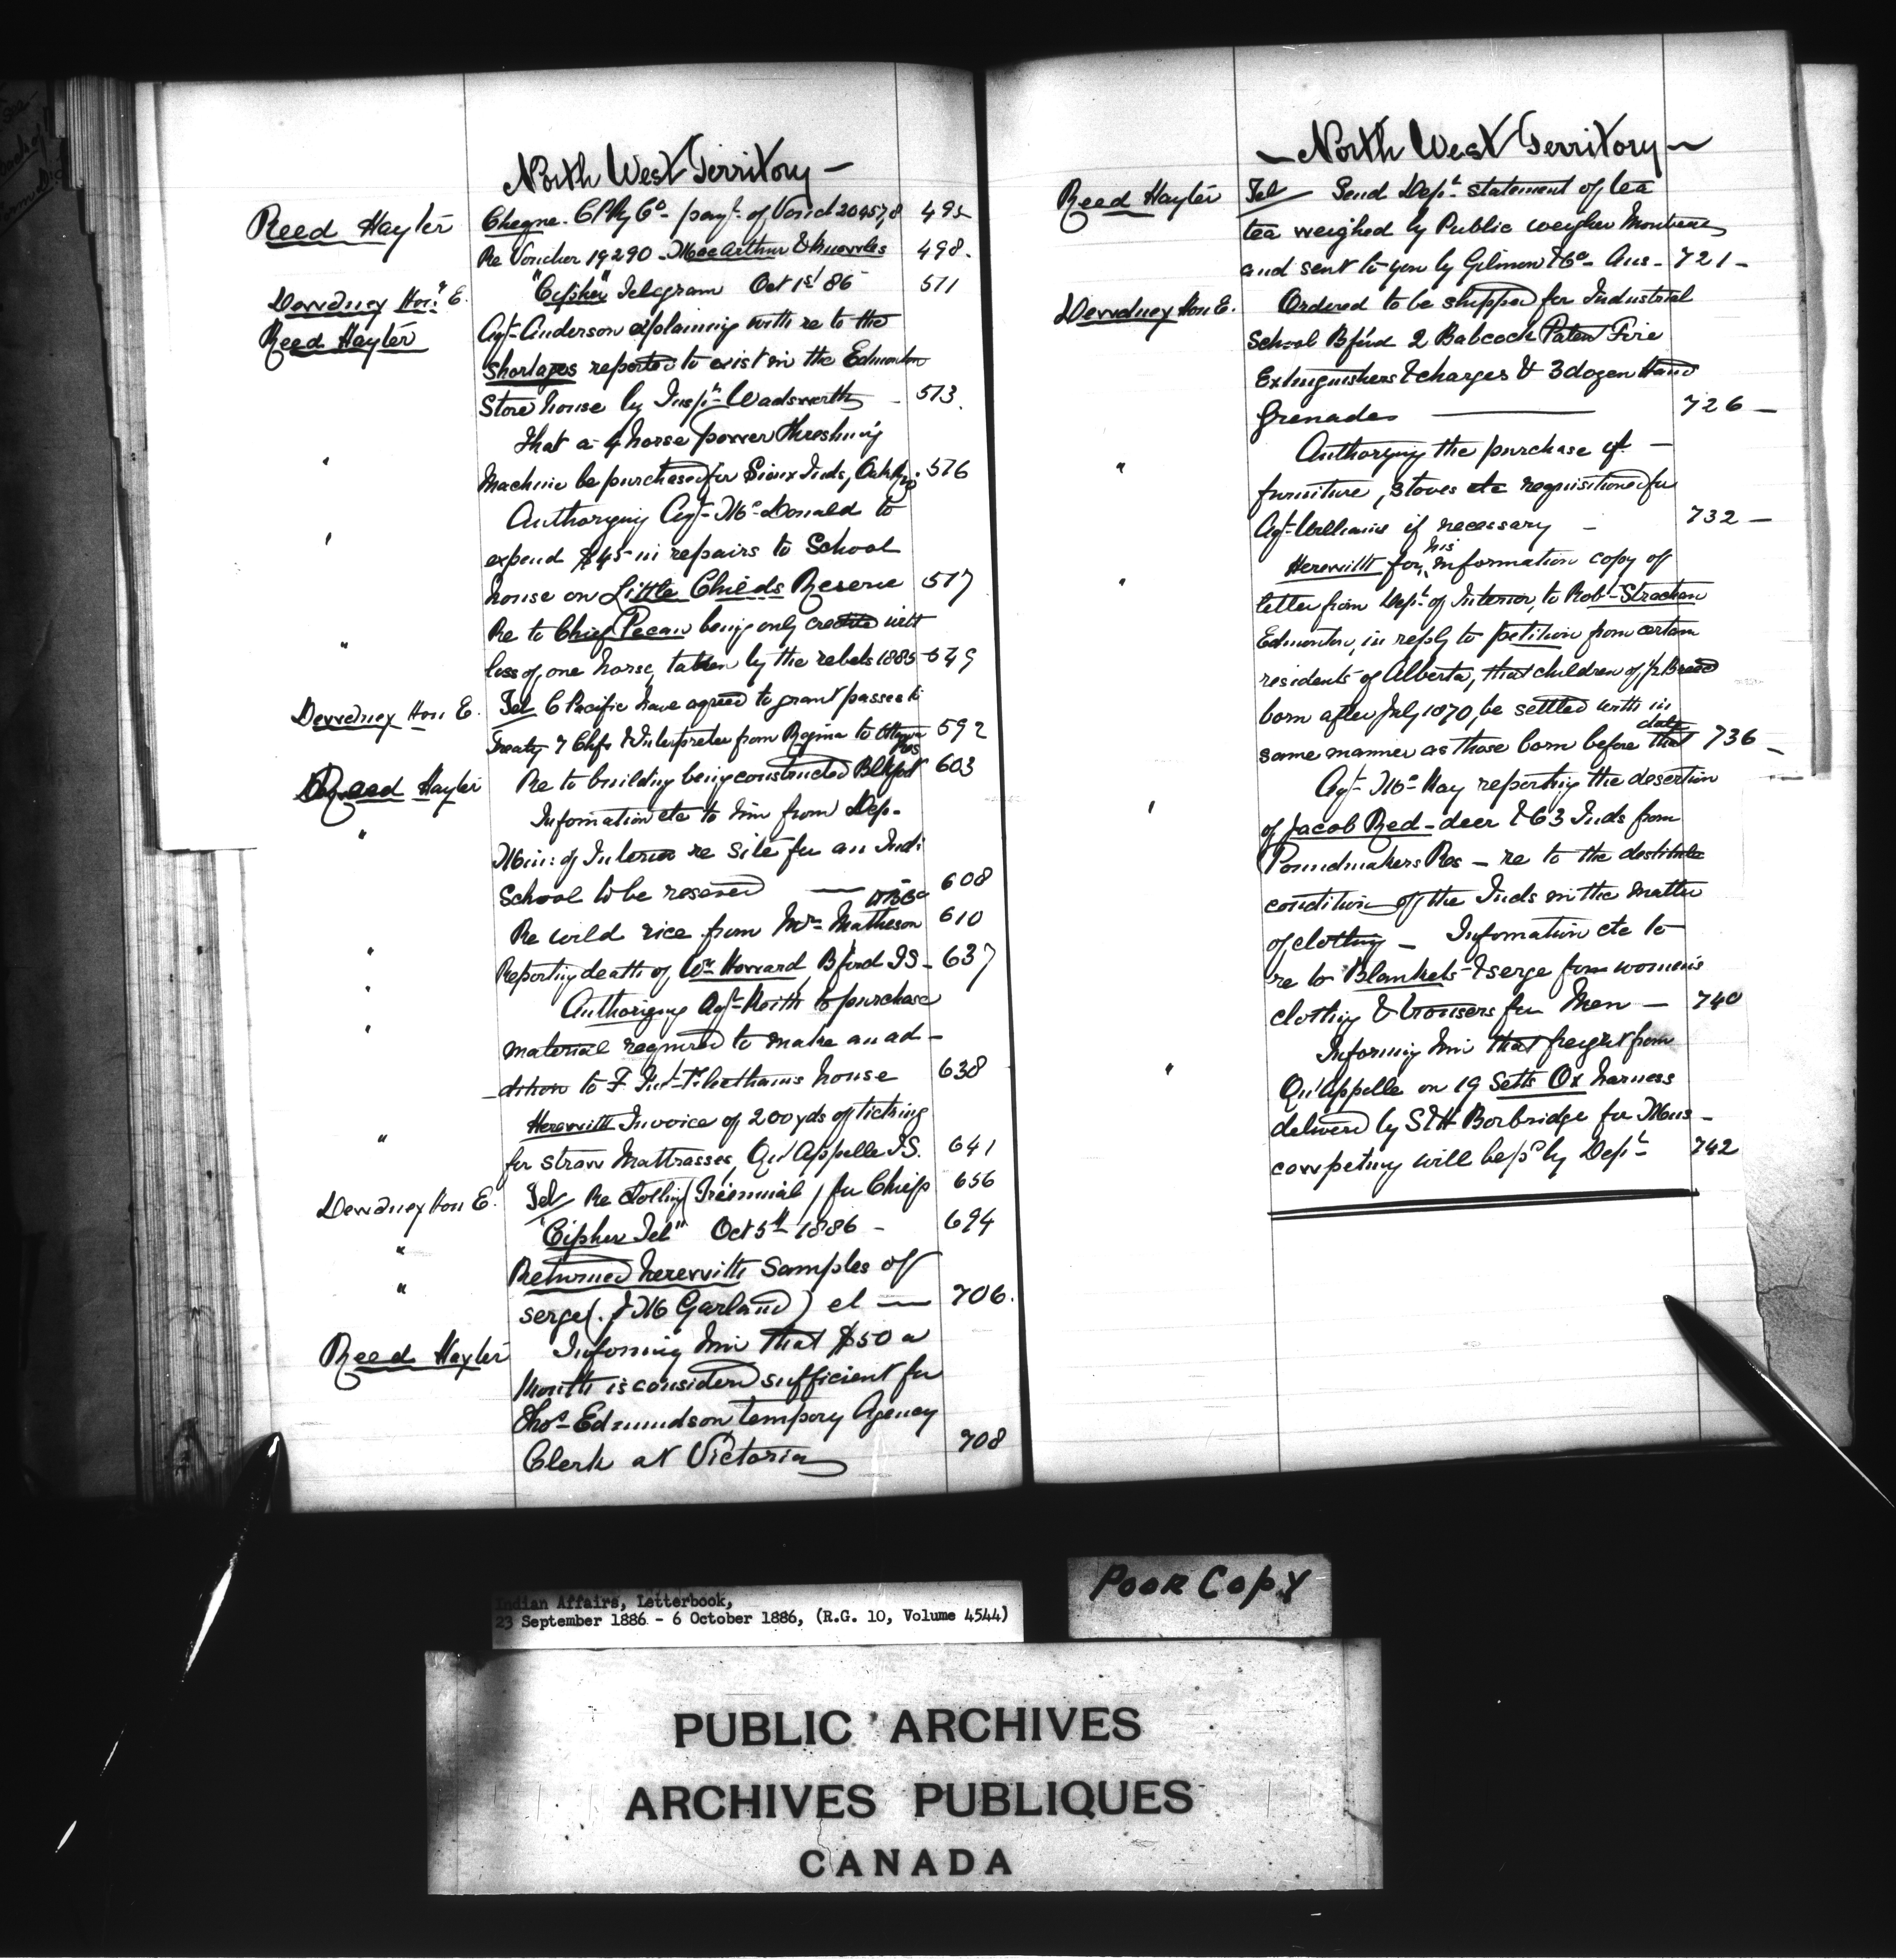 North West Territory —
Reed Hayter Cheque. C P Ry Co - payt. of Vouch 20457,8 495
Re Voucher 19290 - MacArthur & Knowles 498.
Dewdney Hon. E. "Cipher" Telegram Oct 1st 86 511
Reed Hayter Agt- Anderson explaining with re to the
Shortages reported to exist in the Edmonton
Store house by Inspr. Wadsworth - 513.
That a 4 horse power threshing
" Machine be purchased for Sioux Inds, Oak 576
Authorizing Agt- Mc Donald to
" expend $45- in repairs to School
house on Little Childs Reserve 517
Re to Chief Pecan being only credited with
" loss of, one horse, taken by the rebels 1885- 549
Dewdney Hon E. Tel C Pacific have agreed to grant passes to
Treaty 7 Chfs & Interpreter from Regina to Ottawa 592
Reed Hayter Re to building being constructed Blkfoot Res 603
Information etc to him from Dep-
" Min: of Interior re site for an Ind:
School to be reserved — 608
Re wild rice from Mr- Matheson 610
" Reporting death of Wm Howard, Bford IS- 637
" Authorizing Agt- Keith to purchase
" material required to make an ad-
-dition to F. Inst- house 638
Herewith Invoice of 200 yds of ticking
" for straw Mattrasses, Qu'Appelle IS. 641
Dewdney Hon E. Tel Re clothing (Triennial) for Chiefs 656
" "Cipher Tel" Oct 5th 1886 - 694
" Returned herewith Samples of
serge (. J M Garland) et — 706.
Reed Hayter Informing him that $50 a
Month is considered sufficient for
Thos- Edmundson tempory Agency
Clerk at Victoria 708
— North West Territory —
Reed Hayter Tel Send Dept. statement of tea
tea weighed by Public weigher Montreal
and sent to you by Gilmour & Co- Ans- 721-
Dewdney Hon E. Ordered to be shipped for Industrial
School Bford 2 Babcock Patent Fire
Extinguishers & charges & 3 dozen Hand
Grenades — 726 —
Authorizing the purchase of —
" furniture, stoves etc requisitioned for
Agt- Williams if necessary - 732 —
Herewith for his information copy of
" letter from Dept. of Interior, to Robt- Strachan
Edmonton, in reply to petition from certain
residents of Alberta, that children of ½ Breed
born after July 1870, be settled with in
same manner as those born before that date 736 —
" Agt- Mc Kay reporting the desertion
of Jacob Red-deer & 63 Inds from
Poundmakers Res - re to the destitute
condition of the Inds in the matter
of clothing - Information etc to
re to Blankets & serge for womens
clothing & trousers for Men — 740
Informing him that freight from
" Qu'Appelle on 19 Setts Ox harness
delivered by S & H Borbridge for Mens -
competing will be pd by Dept- 742
Indian Affairs, Letterbook,
23 September 1886 - 6 October 1886, (R.G. 10, Volume 4544)
POOR COPY
PUBLIC ARCHIVES
ARCHIVES PUBLIQUES
CANADA